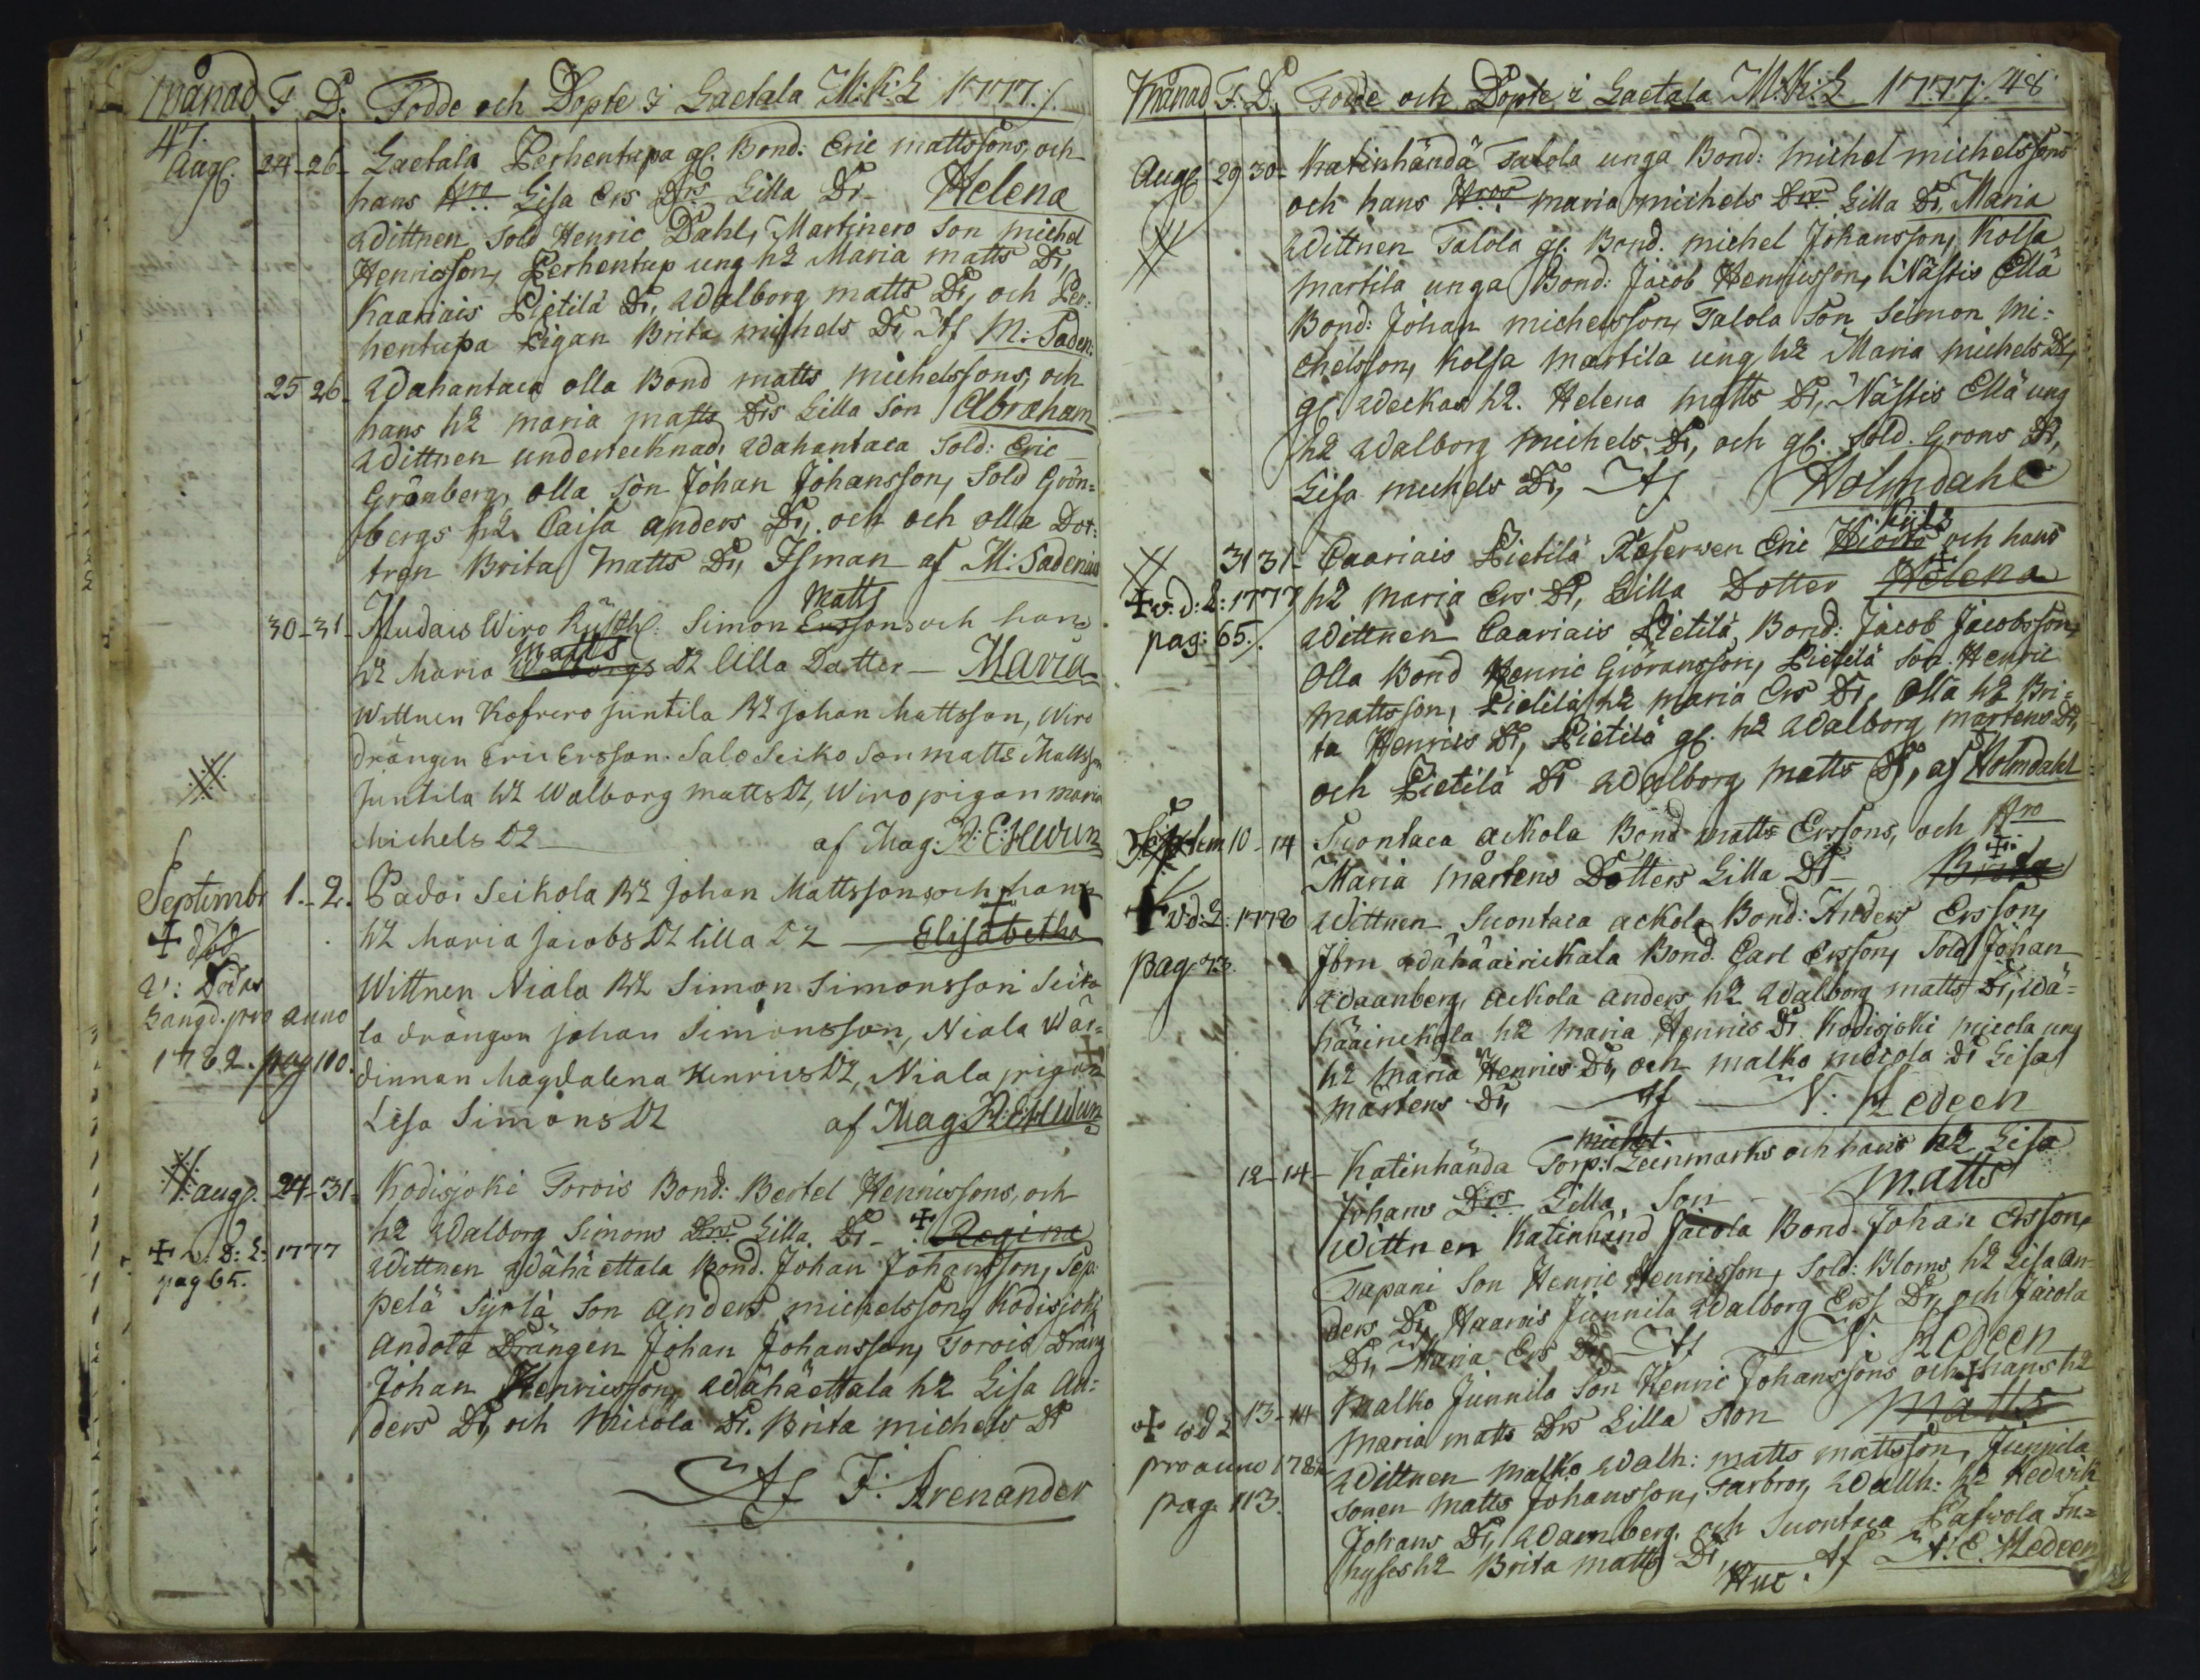 Månad F. D. Födde och Döpte i Laetala M:K:L 1777./.
47.
Aug. 24-26- Laetala Perhentupa gl. Bond: Eric mattssons, och
hans Hro Lisa Ers Drs Lilla Dr- Helena
Wittnen Sold Henric Dahl, Martinero Son michel
Henricsson, Perhentup ung h2 Maria matts Dr,
Kaariais Pietilä Dr, Walborg matts Dr, och Per:
hentupa Pigan Brita michels Dr, Af M: Saden:
25 26- Wahantaca olla Bond matts michelssons, och
hans h2 maria matts Drs Lilla Son Abraham
Wittnen undertecknad, Wahantaca Sold: Eric
Grönberg, olla Son Johan Johansson, Sold Grön=
bergs h2 Caisa anders Dr, och och olla Dot:
tren Brita Matts Dr, af M: Sadenius
Matts
30-31- Mudais Wiro Rusth: Simon Erssons och hans
Matts
h2 Maria D2 lilla Dotter - Maria
Wittnen Kofrero Juntila B2 Johan Mattsson, Wiro
drängen Eric Ersson. Salo Seiko Son matts Mattsson
Juntila h2 Walborg matts D2, Wiro pigan maria
Michels D2 af Mag: R: E: Hewun
Septembr 1.-2. Padoi Seikola B2 Johan Mattssons och hans
h2 Maria Jacobs D2 lilla D2 - Elisabetha
v: Dödas
Längd. pro anno
1782. pag 110.
Wittnen Niala B2 Simon Simonsson Seiko
la drängen Johan Simonsson, Niala Wär=
dinnan Magdalena Henrics D2, Niala pigan
Lisa Simons D2 af Mag: R: E: Hewun
aug. 24-31- Kodisjoki Torois Bond: Bertel Henricssons, och
h2 Walborg Simons Drs Lilla Dr- Regina
v: d: L: 1777
pag 65.
Wittnen Wähäettala Bond. Johan Johansson, Sep:
pelä Syrlä Son anders michelsson, Kodisjoki
Andola Drängen Johan Johansson, Torois Dräng
Johan Henricsson, Wähäettala h2 Lisa An:
ders Dr, och Micola Dr. Brita michels Dr
Af F: Arenander
Månad F. D. Födde och Döpte i Laetala M:K:L 1777./. 48
Aug 29 30- Katinhändä Talola unga Bond: michel michelssons
och hans Hros maria michels Drs Lilla Dr, Maria
Wittnen Talola gl. Bond. michel Johansson, Kolsa
Martila unga Bond: Jacob Henricsson, Nästis Ellä
Bond: Johan michelsson, Talola Son Simon mi:
chelsson, Kolsa martila ung h2 Maria michels Dr,
gl. Weckas h2. Helena matts Dr, Nästis Ellä ung
h2 Walborg michels Dr, och gl: Sold. Grons Dr,
Lisa michels Dr, Af Holmdahl
31 31- Caariais Pietilä Reserven Eric och hans
h2 maria Ers Dr, Lilla Dotter Helena
v: d: L: 1777
pag: 65./.
Wittnen Caariais Pietilä, Bond: Jacob Jacobsson,
Olla Bond Henric Giöransson, Pietilä Son Henric
Mattsson, Pietilä h2 maria Ers Dr, Olla h2 Bri=
ta Henrics Dr, Pietilä gl. h2 Walborg martens Dr,
och Pietilä Dr Walborg Matts Dr, af Holmdahl
Septem 10-14 Suontaca ackola Bond matts Erssons, och Hro
Maria Mårtens Dotters Lilla Dr- Brita
v: d: L: 1778
pag. 73.
Wittnen Suontaca ackola Bond: Anders Ersson,
Ibm Wähääirickala Bond. Carl Ersson, Sold Johan
Waanberg, ackola anders h2 Walborg matts Dr, Wä=
hääirickala h2 maria Henrics Dr Kodisjoki micola ung
h2 maria Henrics Dr, och malko micola Dr Lisa
Mårtens Dr, Af N: Hedeen
michel
12-14- Katinhända Torp: Leinmarks och hans h2 Lisa
Johans Drs Lilla Son Matts
Wittnen Katinhänd Jacola Bond Johan Ersson,
Tapani Son Henric Henricsson, Sold: Bloms h2 Lisa An
ders Dr, Haarois Junnila Walborg Ers Dr, och Jacola
Dr, Maria Ers Dr Af N: Hedeen
13-14 Malko Junnila Son Henric Johanssons och hans h2
Maria matts Drs Lilla Son Matts
v d L
pro anno 178
pag. 113.
Wittnen malko Walh: matts mattsson, Junnila
Sonen Matts Johansson, Farbror, Wallh: h2 Hedvik
Johans Dr, Waernberg. och Suontaca In=
hyses h2 Brita matts Dr, Af N. E. Hedeen
Huc.